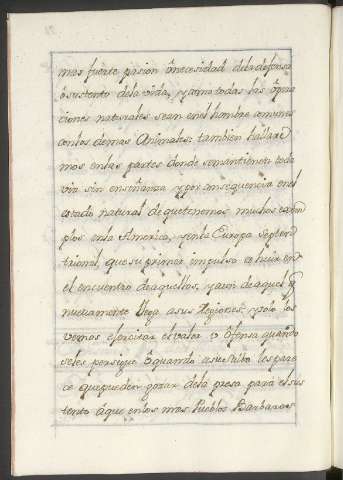 mas fuerte pasion ô necesidad dela defensa
ô sustento dela vida, y como todas las ôpera
ciones naturales sean enel hombre comunes
conlos demas Animales: tambien hallare
mos enlas partes donde semantienen toda
via sin enseñanza y por consequencia enel
estado natural dequetenemos muchos exem
plos enla America, y enla Europa Septen
trional, que su primer impulso es huir en
el encuentro deaquellos, y aun deaquel q
nuevamente llega asus Regiones; y solo los
vemos exercitar el valor u ôfensa quando
seles persigue ô quando asu salvo les pare
ce quepueden gozar dela presa para el sus
tento áque enlos mas Pueblos Barbaros